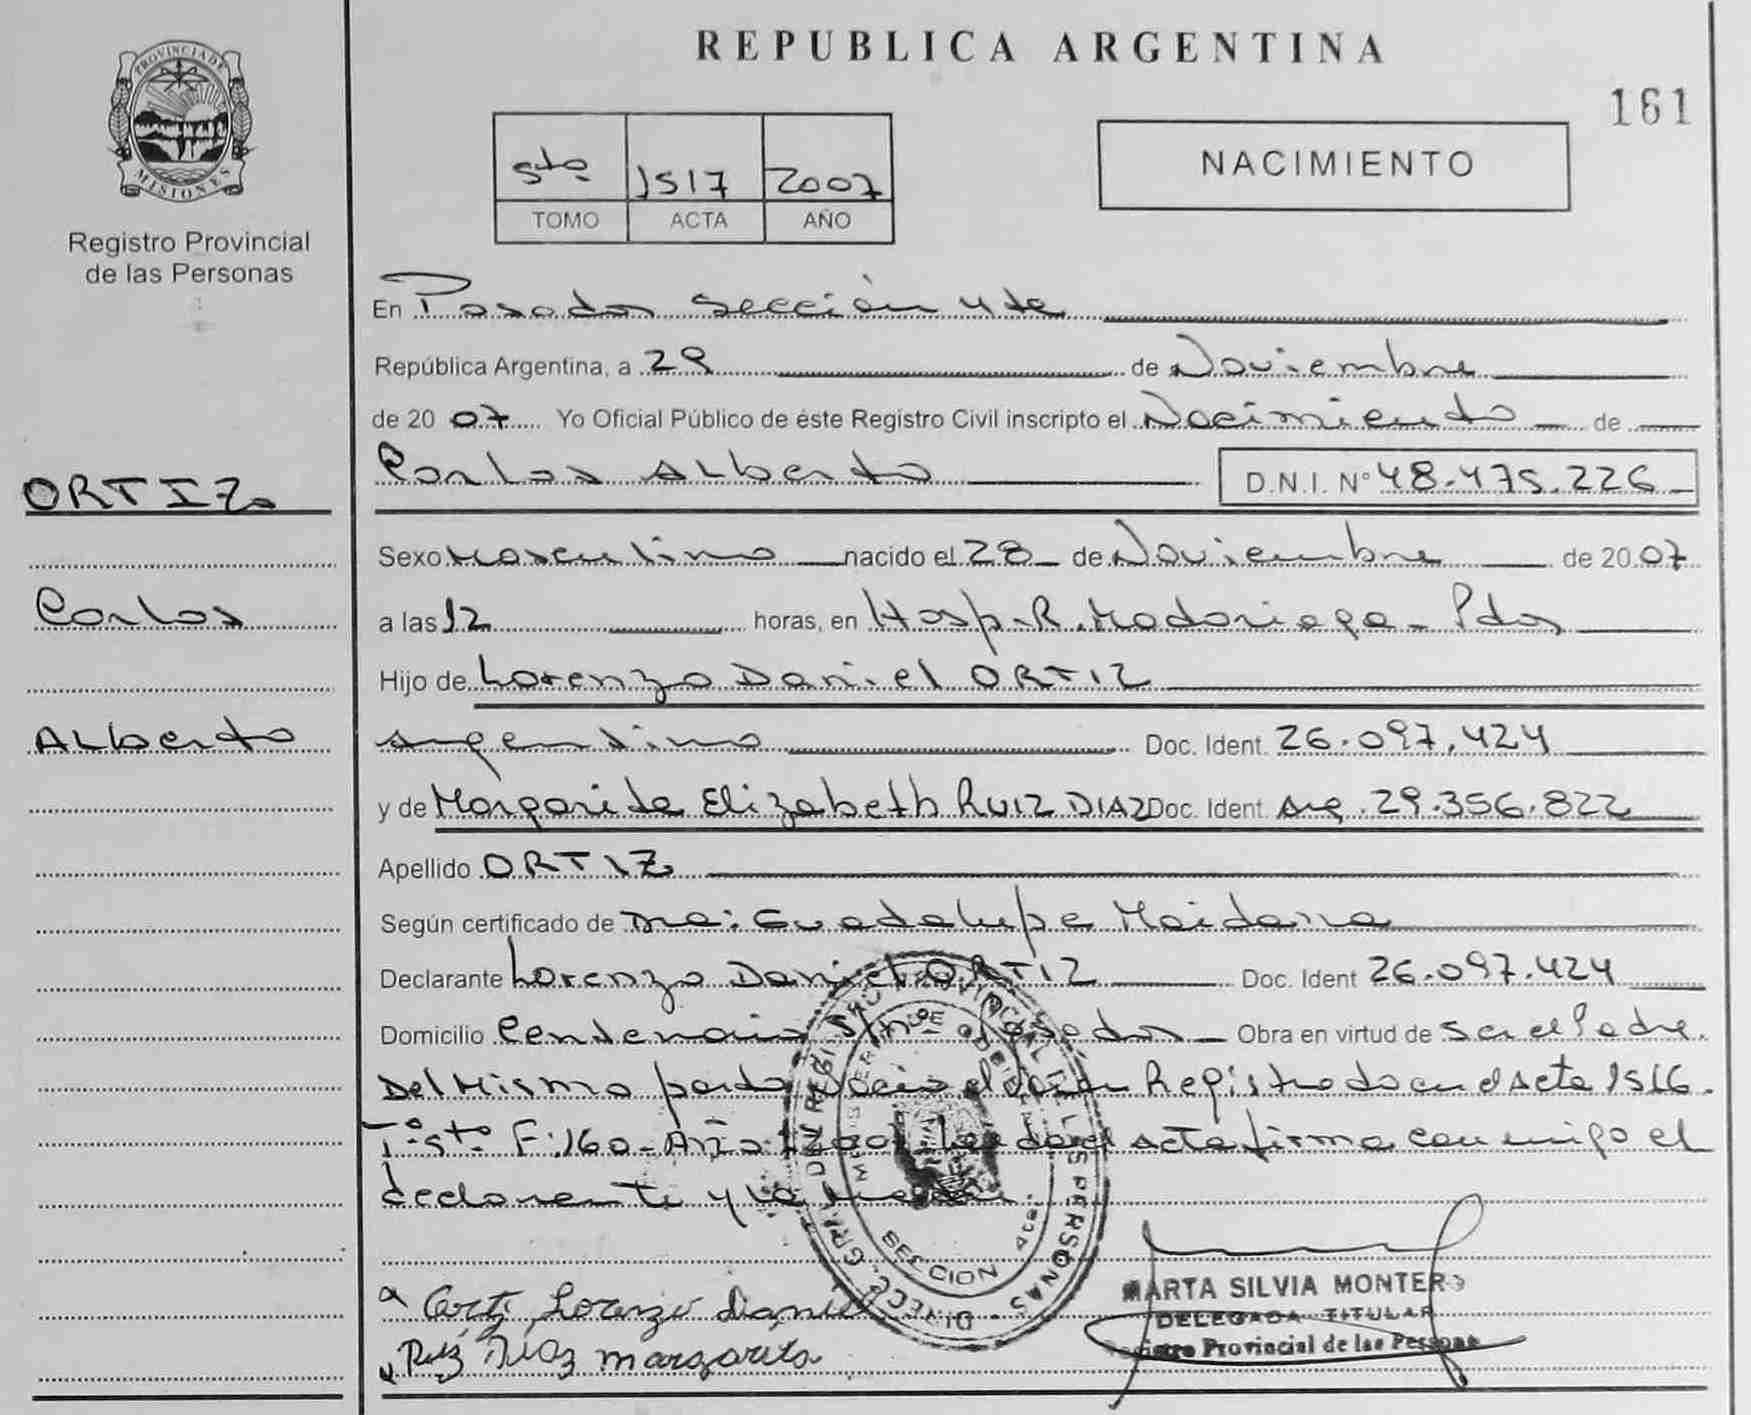 REPUBLICA ARGENTINA
161
PROVINCIA DE
MISIONES
Registro Provincial
de las Personas
5to 1517 2007
TOMO ACTA AÑO
NACIMIENTO
En Posadas sección 4ta
República Argentina, a 29 de Noviembre
de 2007 Yo Oficial Público de éste Registro Civil inscripto el Nacimiento de
Carlos Alberto D.N.I. Nº 48.475.226
ORTIZ
Carlos
Alberto
Sexo Masculino nacido el 28 de Noviembre de 2007
a las 12 horas, en Hosp. R. Madariaga - Pdas
Hijo de Lorenzo Daniel ORTIZ
Argentino Doc. Ident. 26.097.424
y de Margarita Elizabeth RUIZ DIAZ Doc. Ident. Arg. 29.356.822
Apellido ORTIZ
Según certificado de Dra: Guadalupe Maidana
Declarante Lorenzo Daniel ORTIZ Doc. Ident 26.097.424
Domicilio Centenario S/nº Posadas Obra en virtud de Ser el Padre.
Del Mismo parto Registrado en el Acta 1516.
Tº 5to F:160 - Año acta firma con migo el
declarante y la madre.
Ortiz, Lorenzo Daniel
Ruiz Díaz margarita
SECCION 4ta.
MARTA SILVIA MONTERO
DELEGADA TITULAR
Registro Provincial de las Personas